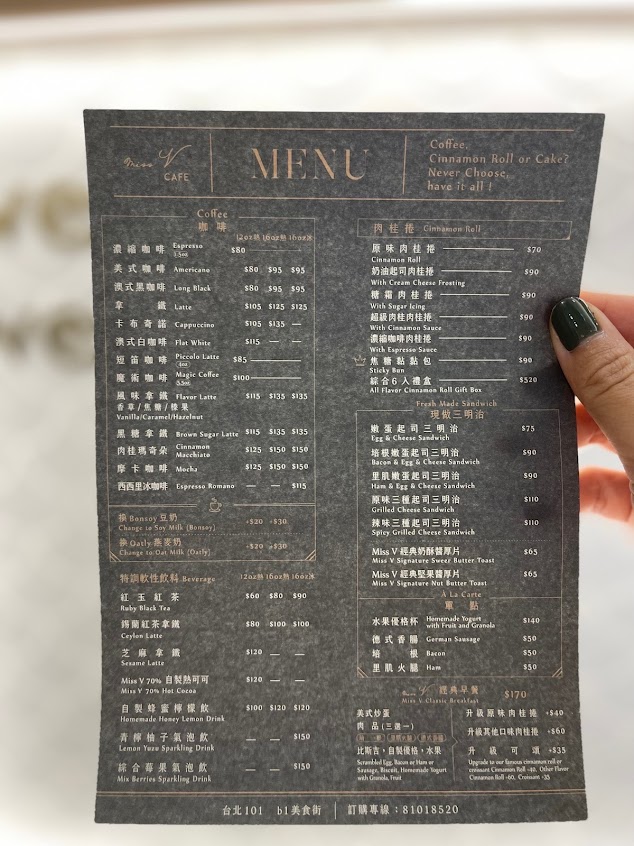 Miss V
CAFE
MENU
Coffee,
Cinnamon Roll or Cake?
Never Choose,
have it all !
Coffee
咖啡
12oz熱 16oz熱 16oz冰
濃縮咖啡 Espresso 1.5oz $80
美式咖啡 Americano $80 $95 $95
澳式黑咖啡 Long Black $80 $95 $95
拿鐵 Latte $105 $125 $125
卡布奇諾 Cappuccino $105 $135 —
澳式白咖啡 Flat White $115 — —
短笛咖啡 Piccolo Latte 4oz $85
魔術咖啡 Magic Coffee 5.5oz $100
風味拿鐵 Flavor Latte $115 $135 $135
香草/焦糖/榛果
Vanilla/Caramel/Hazelnut
黑糖拿鐵 Brown Sugar Latte $115 $135 $135
肉桂瑪奇朵 Cinnamon Macchiato $125 $150 $150
摩卡咖啡 Mocha $125 $150 $150
西西里冰咖啡 Espresso Romano — — $115
換Bonsoy豆奶 +$20 +$30
Change to Soy Milk (Bonsoy)
換Oatly燕麥奶 +$20 +$30
Change to Oat Milk (Oatly)
特調軟性飲料 Beverage 12oz熱 16oz熱 16oz冰
紅玉紅茶 $60 $80 $90
Ruby Black Tea
錫蘭紅茶拿鐵 $80 $100 $100
Ceylon Latte
芝麻拿鐵 $120 — —
Sesame Latte
Miss V 70% 自製熱可可 $120 — —
Miss V 70% Hot Cocoa
自製蜂蜜檸檬飲 $100 $120 $120
Homemade Honey Lemon Drink
青檸柚子氣泡飲 — — $150
Lemon Yuzu Sparkling Drink
綜合莓果氣泡飲 — — $150
Mix Berries Sparkling Drink
肉桂捲 Cinnamon Roll
原味肉桂捲 $70
Cinnamon Roll
奶油起司肉桂捲 $90
With Cream Cheese Frosting
糖霜肉桂捲 $90
With Sugar Icing
超級肉桂肉桂捲 $90
With Cinnamon Sauce
濃縮咖啡肉桂捲 $90
With Espresso Sauce
焦糖黏黏包 $90
Sticky Bun
綜合6入禮盒 $520
All Flavor Cinnamon Roll Gift Box
Fresh Made Sandwich
現做三明治
嫩蛋起司三明治 $75
Egg & Cheese Sandwich
培根嫩蛋起司三明治 $90
Bacon & Egg & Cheese Sandwich
里肌嫩蛋起司三明治 $90
Ham & Egg & Cheese Sandwich
原味三種起司三明治 $110
Grilled Cheese Sandwich
辣味三種起司三明治 $110
Spicy Grilled Cheese Sandwich
Miss V 經典奶酥醬厚片 $65
Miss V Signature Sweet Butter Toast
Miss V 經典堅果醬厚片 $65
Miss V Signature Nut Butter Toast
À La Carte
單點
水果優格杯 Homemade Yogurt with Fruit and Granola $140
德式香腸 German Sausage $50
培根 Bacon $50
里肌火腿 Ham $50
Miss V 經典早餐 $170
Miss V Classic Breakfast
美式炒蛋
肉品(三選一)
比斯吉,自製優格,水果
Scrambled Egg, Bacon or Ham or
Sausage, Biscuit, Homemade Yogurt
with Granola, Fruit
升級原味肉桂捲 +$40
升級其他口味肉桂捲 +$60
升級可頌 +$35
Upgrade to our famous cinnamon roll or
croissant Cinnamon Roll +40, Other Flavor
Cinnamon Roll +60, Croissant +35
台北101 b1美食街 | 訂購專線:81018520